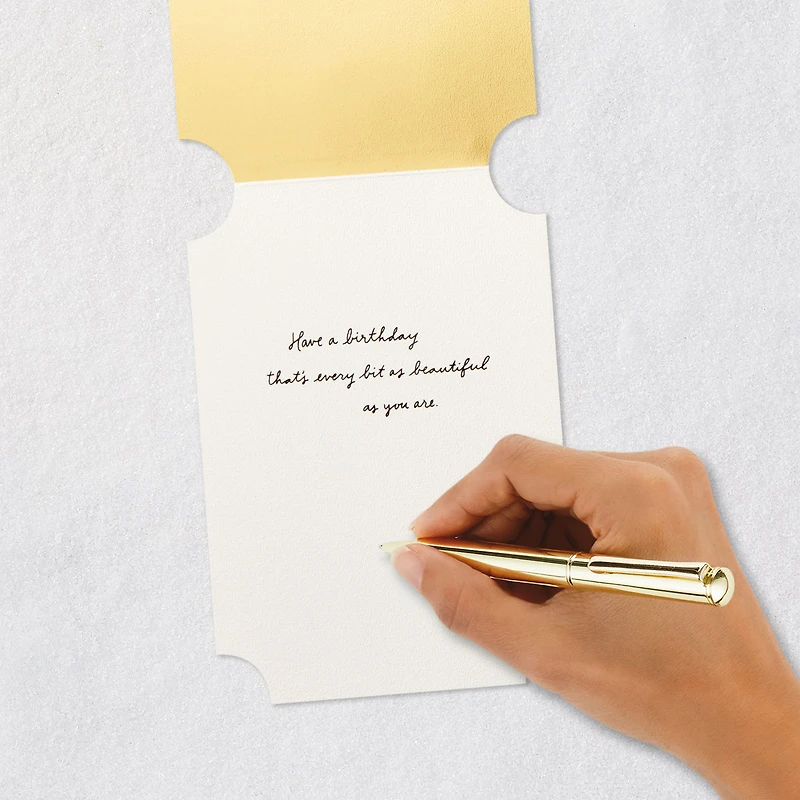 Have a birthday
that's every bit as beautiful
as you are.